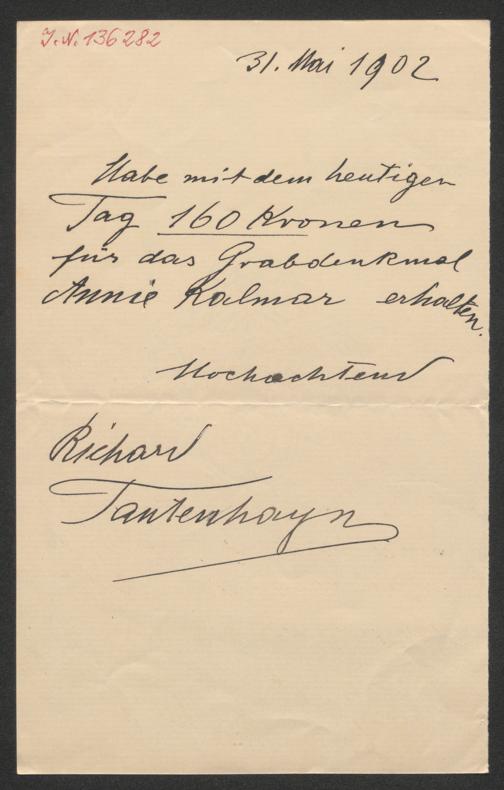 J.N. 136282
31. Mai 1902
Habe mit dem heutigen
Tag 160 Kronen
für das Grabdenkmal
Annie Kalmar erhalten.
Hochachtend
Richard
Tautenhayn